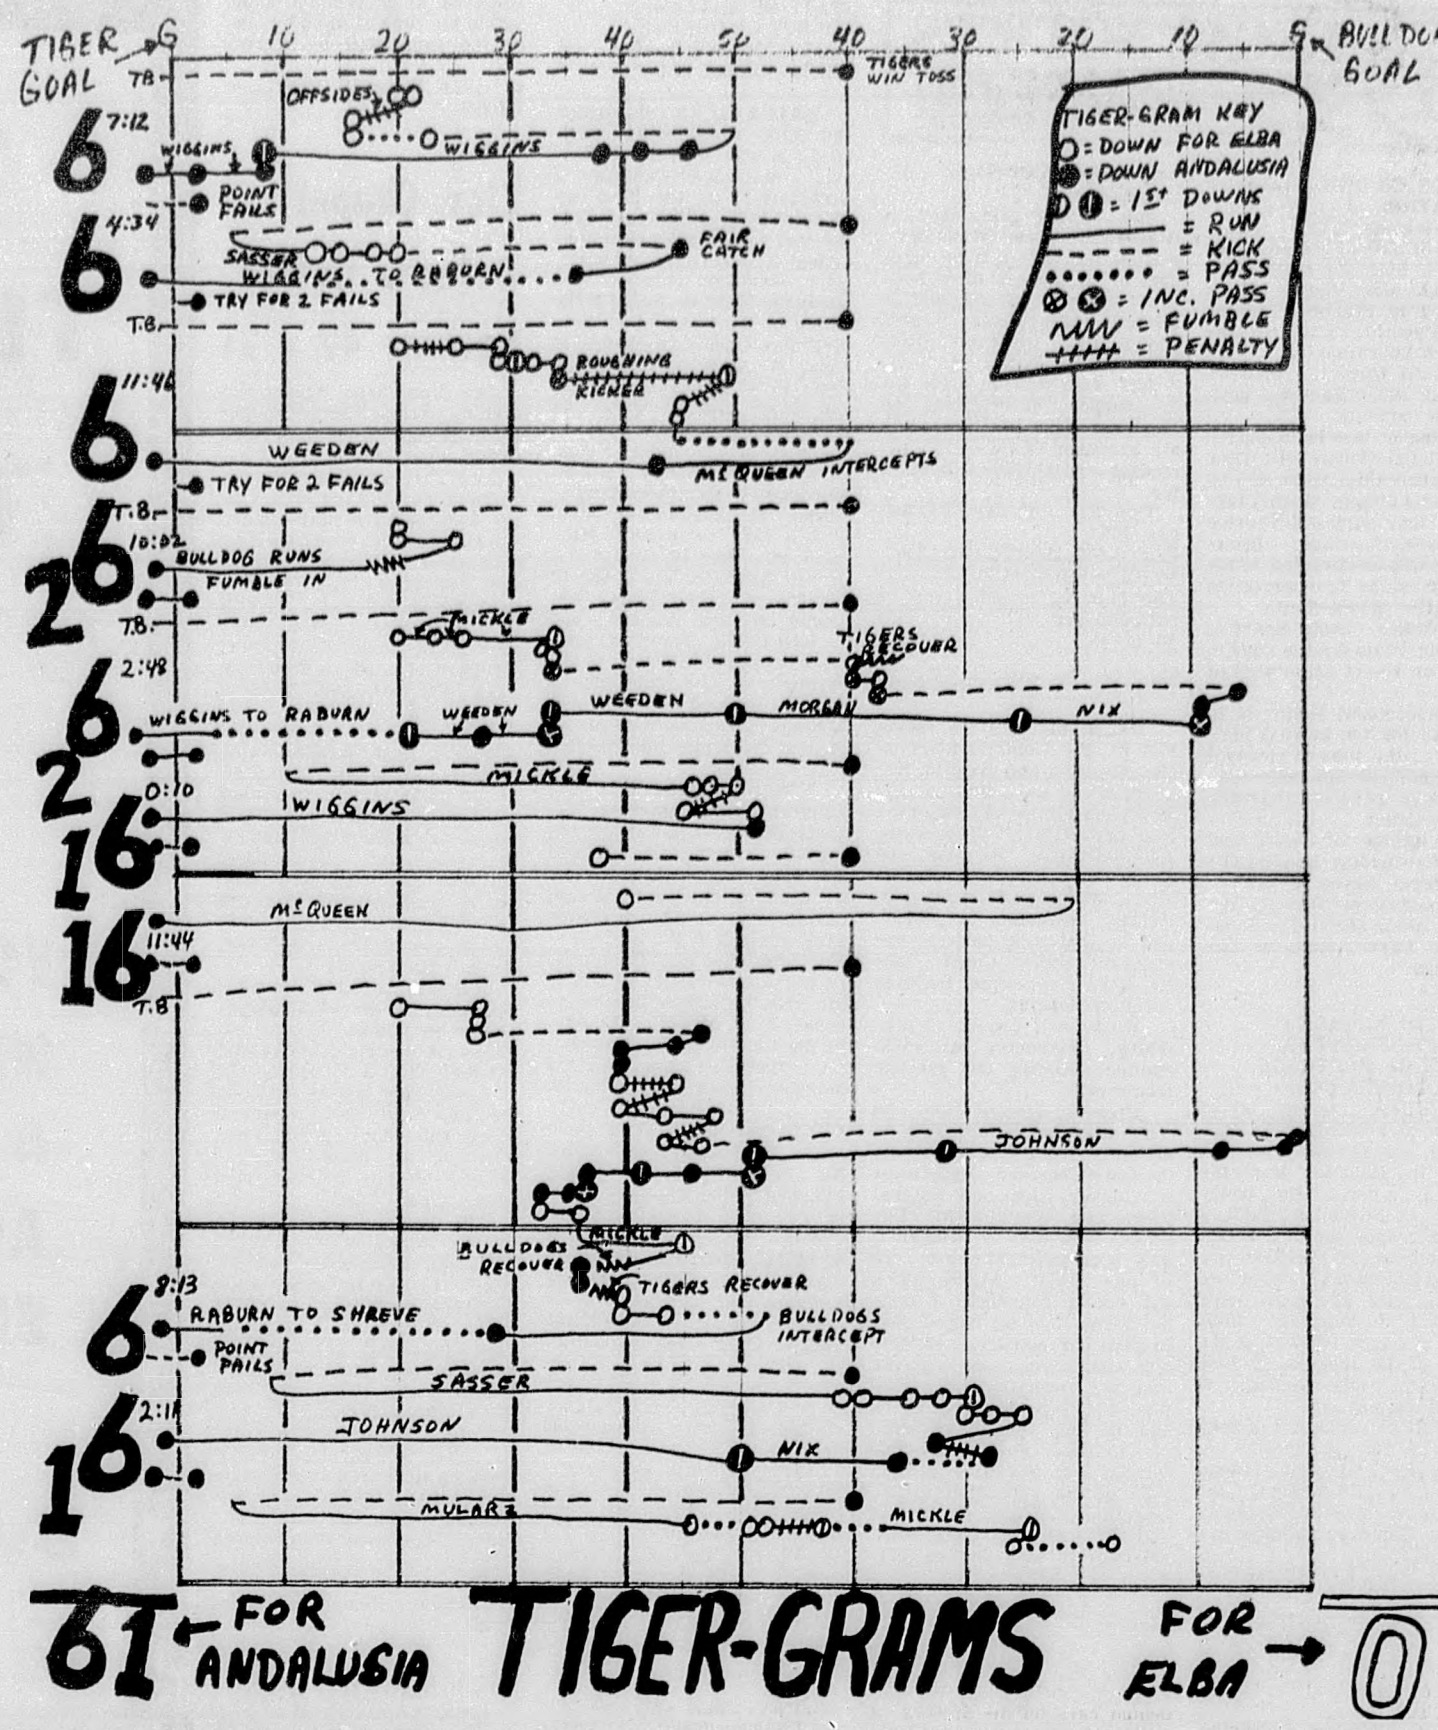 TIGER GOAL
G 10 20 30 40 50 40 30 20 10 G
BULLDO
GOAL
TB
TIGERS
WIN TOSS
OFFSIDES
7:12
6
WIGGINS
WIGGINS
POINT
FAILS
TIGER-GRAM KEY
= DOWN FOR ELBA
= DOWN ANDALUSIA
= 1ST DOWNS
= RUN
= KICK
= PASS
= INC. PASS
= FUMBLE
= PENALTY
4:34
6
SASSER
FAIR
CATCH
WIGGINS TO RABURN
TRY FOR 2 FAILS
T.B.
ROUGHING
KICKER
11:46
6
WEEDEN
McQUEEN INTERCEPTS
TRY FOR 2 FAILS
T.B.
6
10:02
BULLDOG RUNS
FUMBLE IN
2
T.B.
MICKLE
TIGERS
RECOVER
2:48
6
WIGGINS TO RABURN
WEEDEN
WEEDEN
MORGAN
NIX
2
MICKLE
0:10
WIGGINS
16
McQUEEN
11:44
16
T.B
JOHNSON
MICKLE
BULLDOGS
RECOVER
TIGERS RECOVER
8:13
6
RABURN TO SHREVE
BULLDOGS
INTERCEPT
POINT
FAILS
SASSER
2:11
6
JOHNSON
NIX
1
MULARZ
MICKLE
61
FOR
ANDALUSIA
TIGER-GRAMS
FOR
ELBA
0